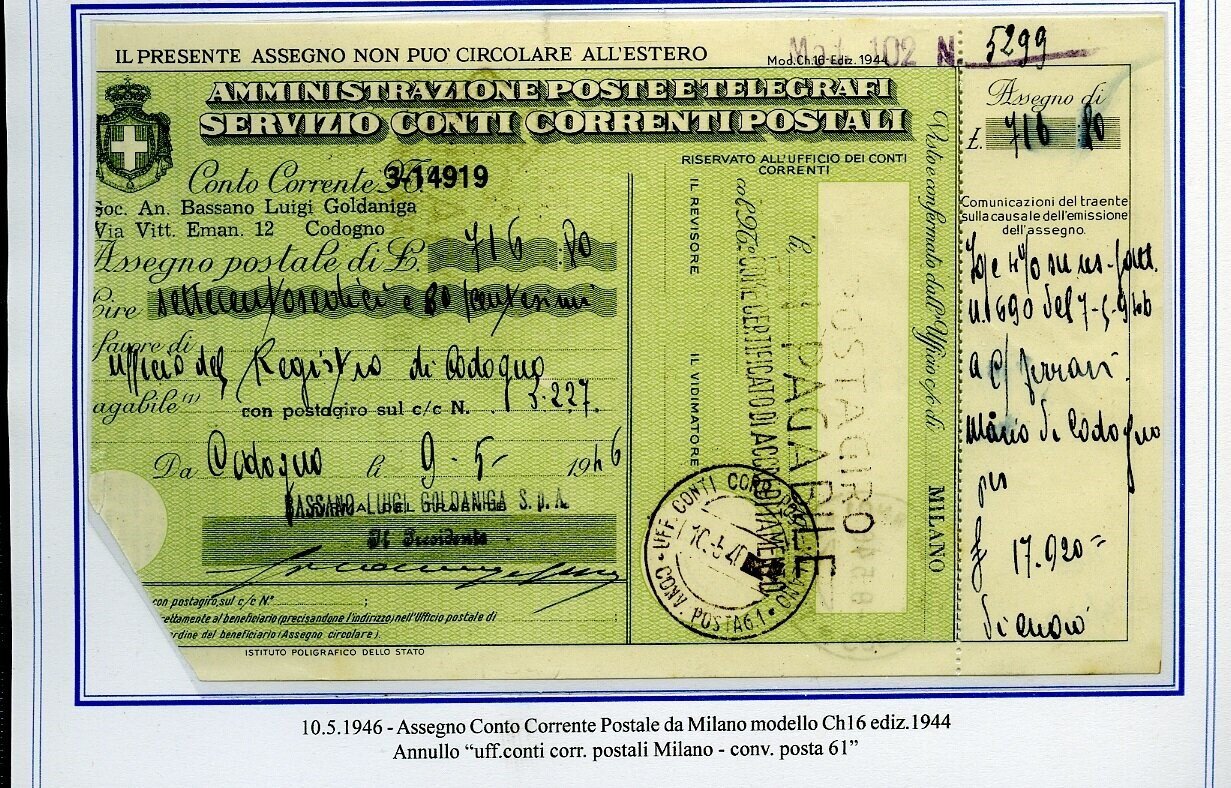 IL PRESENTE ASSEGNO NON PUO' CIRCOLARE ALL'ESTERO
Mod.Ch.16-Ediz. 1944
Mod. 102 N. 5299
AMMINISTRAZIONE POSTE E TELEGRAFI
SERVIZIO CONTI CORRENTI POSTALI
Conto Corrente N. 3-14919
Soc. An. Bassano Luigi Goldaniga
Via Vitt. Eman. 12 Codogno
Assegno postale di £. 716 80
Lire settecentosedici e 80 centesimi
favore di
Ufficio del Registro di Codogno
agabile (1) con postagiro sul c/c N. 3.227.
Da Codogno li 9-5- 1946
BASSANO LUIGI GOLDANIGA S.p.A.
Il Presidente
con postagiro sul c/c N.° ;
rettamente al beneficiario (precisandone l'indirizzo) nell'Ufficio postale di
ordine del beneficiario (Assegno circolare)
ISTITUTO POLIGRAFICO DELLO STATO
RISERVATO ALL'UFFICIO DEI CONTI
CORRENTI
IL REVISORE
IL VIDIMATORE
CERTIFICATO DI ACCREDITAMENTO
li,
NON PAGABILE
POSTAGIRO
UFF CONTI CORR POSTALI MILANO
CONV. POSTA 61
Visto e confermato dall'Ufficio c/c di
MILANO
Assegno di
£. 716 80
Comunicazioni del traente
sulla causale dell'emissione
dell'assegno.
4% su ns.
n. 1690 del 7-5-946
a c/ Ferrari
Mario di Codogno
per
£ 17.920=
10.5.1946 - Assegno Conto Corrente Postale da Milano modello Ch16 ediz.1944
Annullo “uff.conti corr. postali Milano - conv. posta 61”